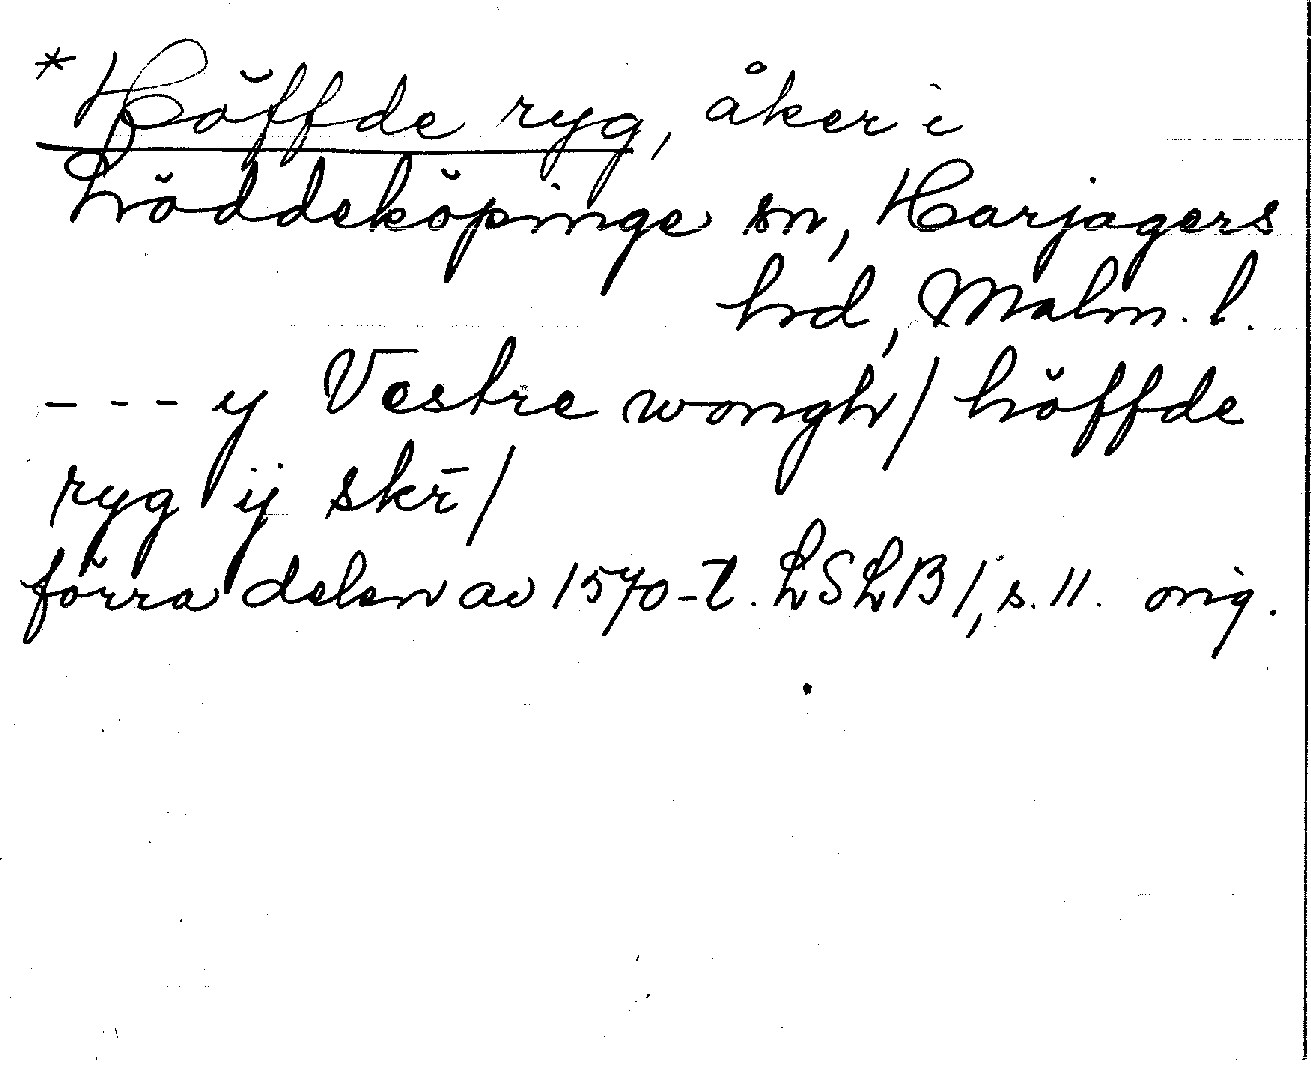 *Höffde ryg, åker i
Löddeköpinge sn, Harjagers
hrd, Malm. l.
--- y Vestre wongh/ höffde
ryg ij skr̄/
förra delen av 1570-t. LSLB 1, s. 11. orig.